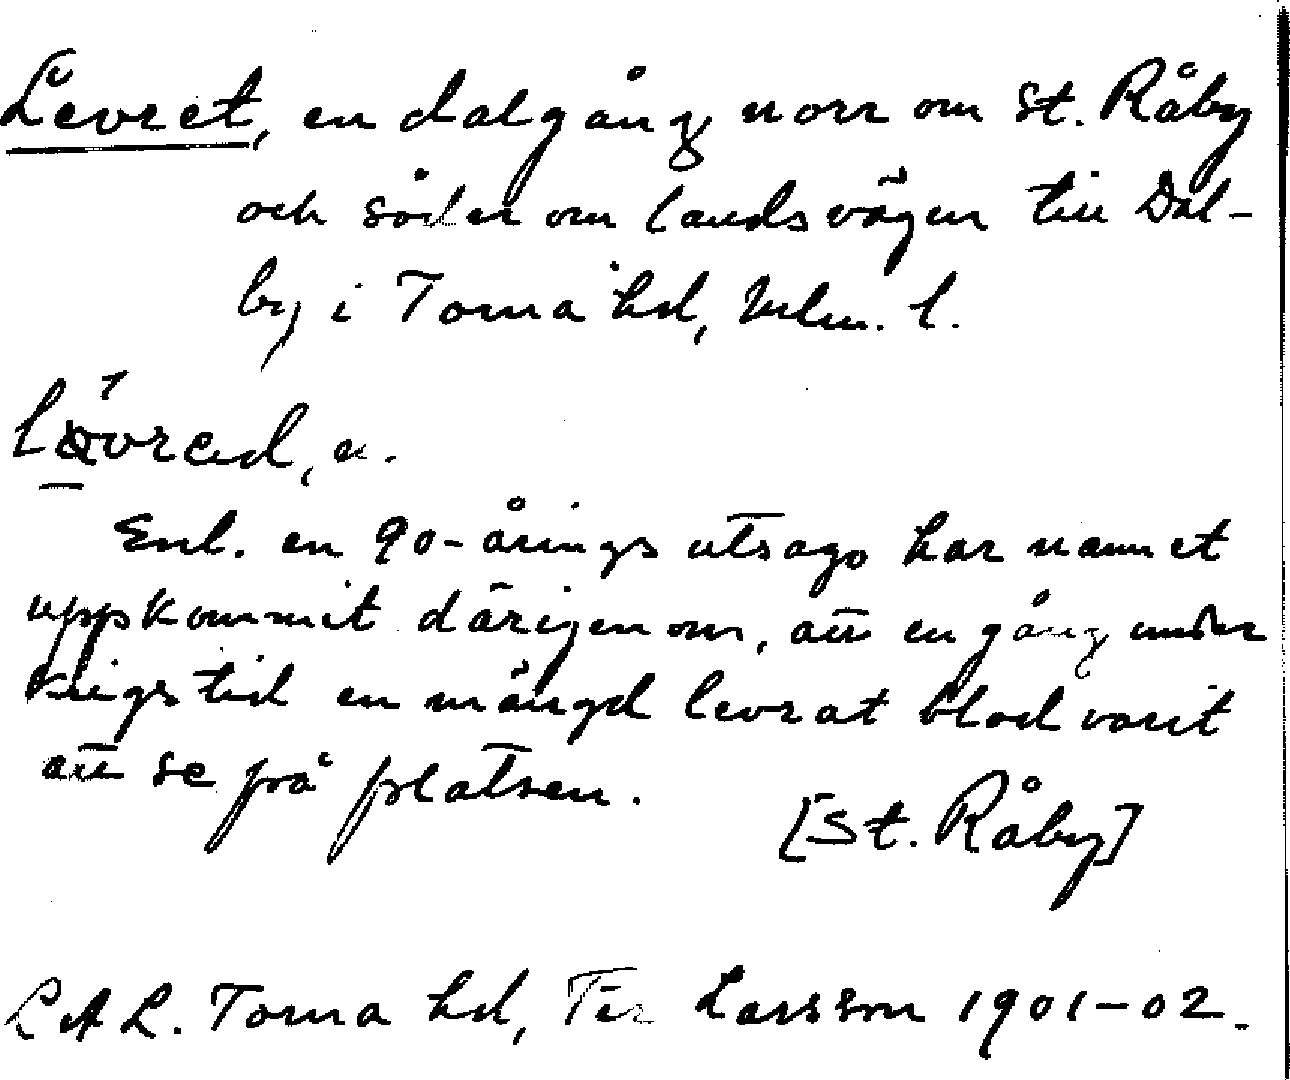 Levret, en dalgång norr om St. Råby
och söder om landsvägen till Dal-
by i Torna hd, Mlm. l.
Enl. en 90-årings utsago har namnet
uppkommit därigenom, att en gång under
krigstid en mängd levrat blod varit
att se på platsen.
[St. Råby]
LAL. Torna hd, Per Larsson 1901-02.